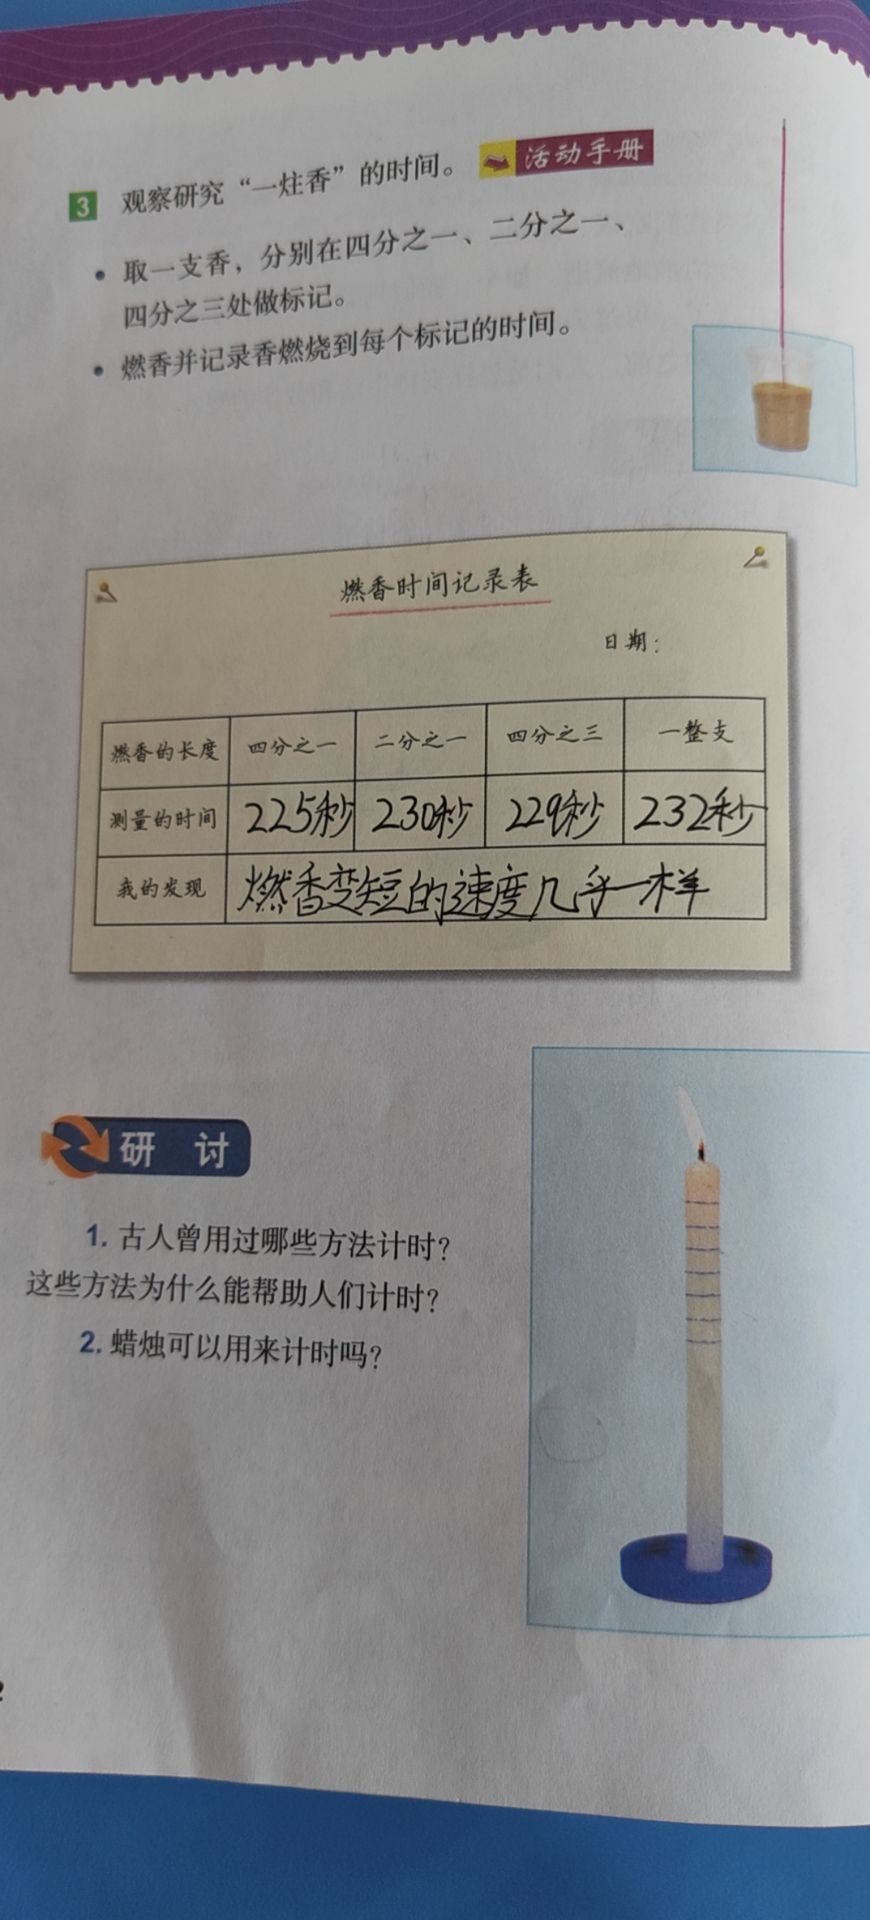 3 观察研究“一炷香”的时间。 活动手册
• 取一支香，分别在四分之一、二分之一、
四分之三处做标记。
• 燃香并记录香燃烧到每个标记的时间。
燃香时间记录表
日期：
燃香的长度 四分之一 二分之一 四分之三 一整支
测量的时间 225秒 230秒 229秒 232秒
我的发现 燃香变短的速度几乎一样
研 讨
1. 古人曾用过哪些方法计时？
这些方法为什么能帮助人们计时？
2. 蜡烛可以用来计时吗？